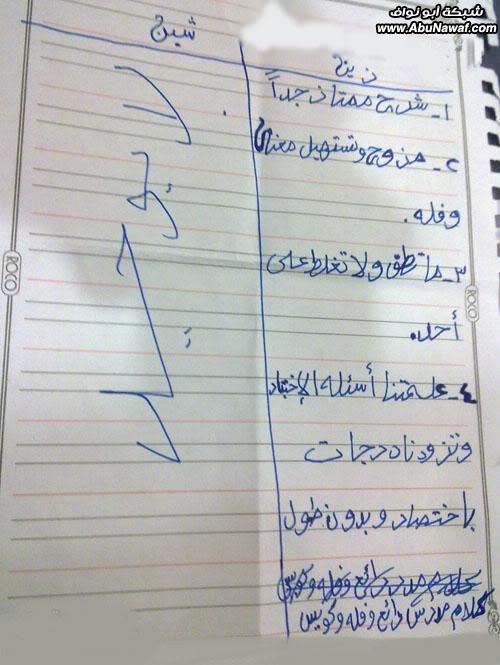 شبكة ابو نواف
www.AbuNawaf.com
زين شين
١- شرح ممتاز جداً
٢- مزوح وتستهبل معنا
وفله.
٣- ماتطق ولا تغلط على
أحد.
٤- علمتنا أسئلة الإختبار
وتزودنا درجات
باختصار وبدون طول
كلام مدرس رائع وفله وكويس
كلام مدرس رائع وفله وكويس
لا يوجد
ROCO
ROCO